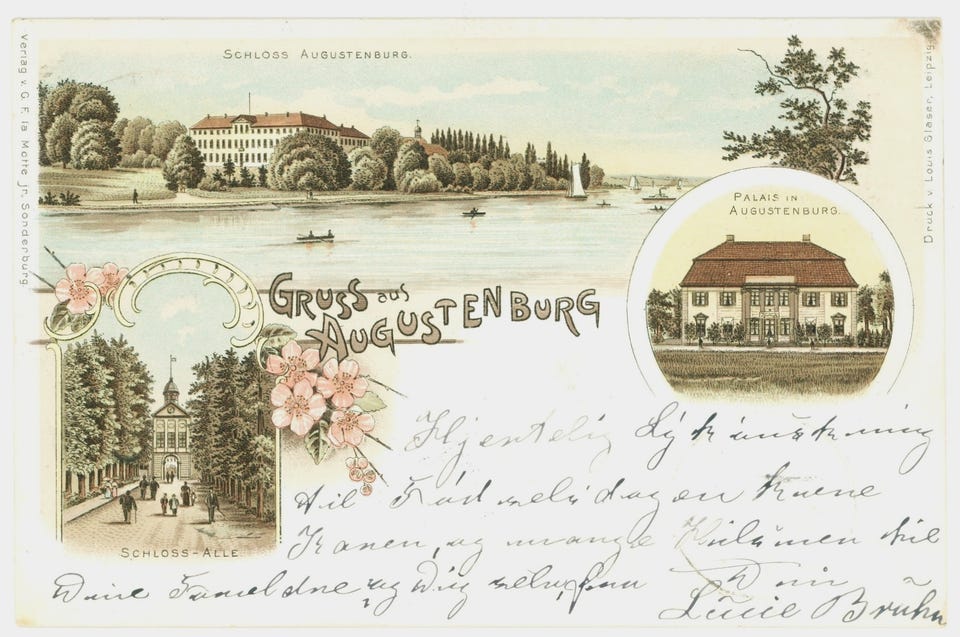 SCHLOSS AUGUSTENBURG.
Verlag v. G. F. la Motte jr. Sonderburg.
Druck v. Louis Glaser, Leipzig.
PALAIS IN
AUGUSTENBURG.
GRUSS aus
AUGUSTENBURG
SCHLOSS-ALLE
Hjertelig Lykønskning
til Fødselsdagen
og mange Hilsmen til
Dine Foreldre og Dig selv, fra Din
Lucie Bruhn